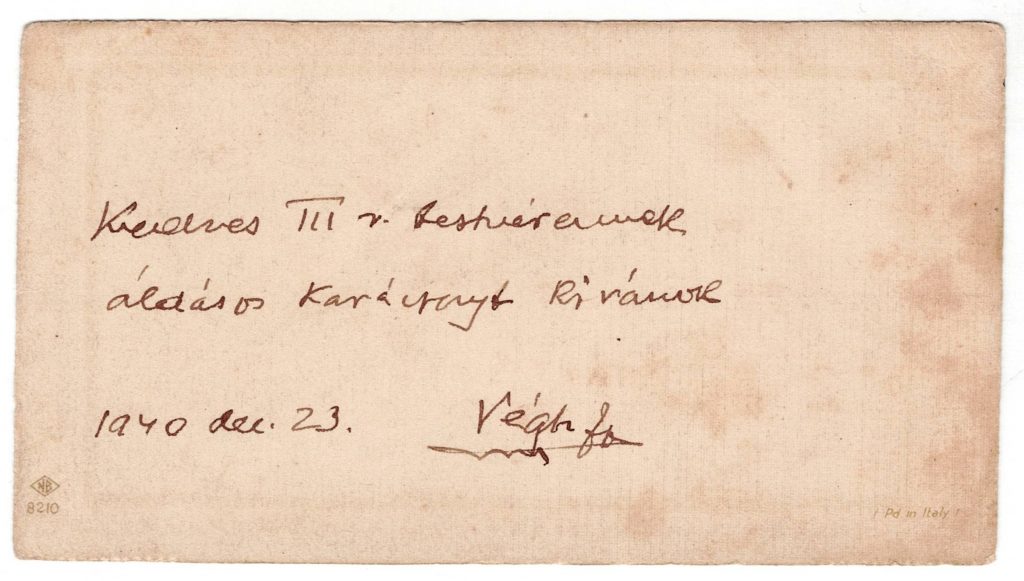 Kedves III r. testvéremnek
áldásos Karácsonyt kívánok
1940 dec. 23. Végh
NB
8210
Pd in Italy